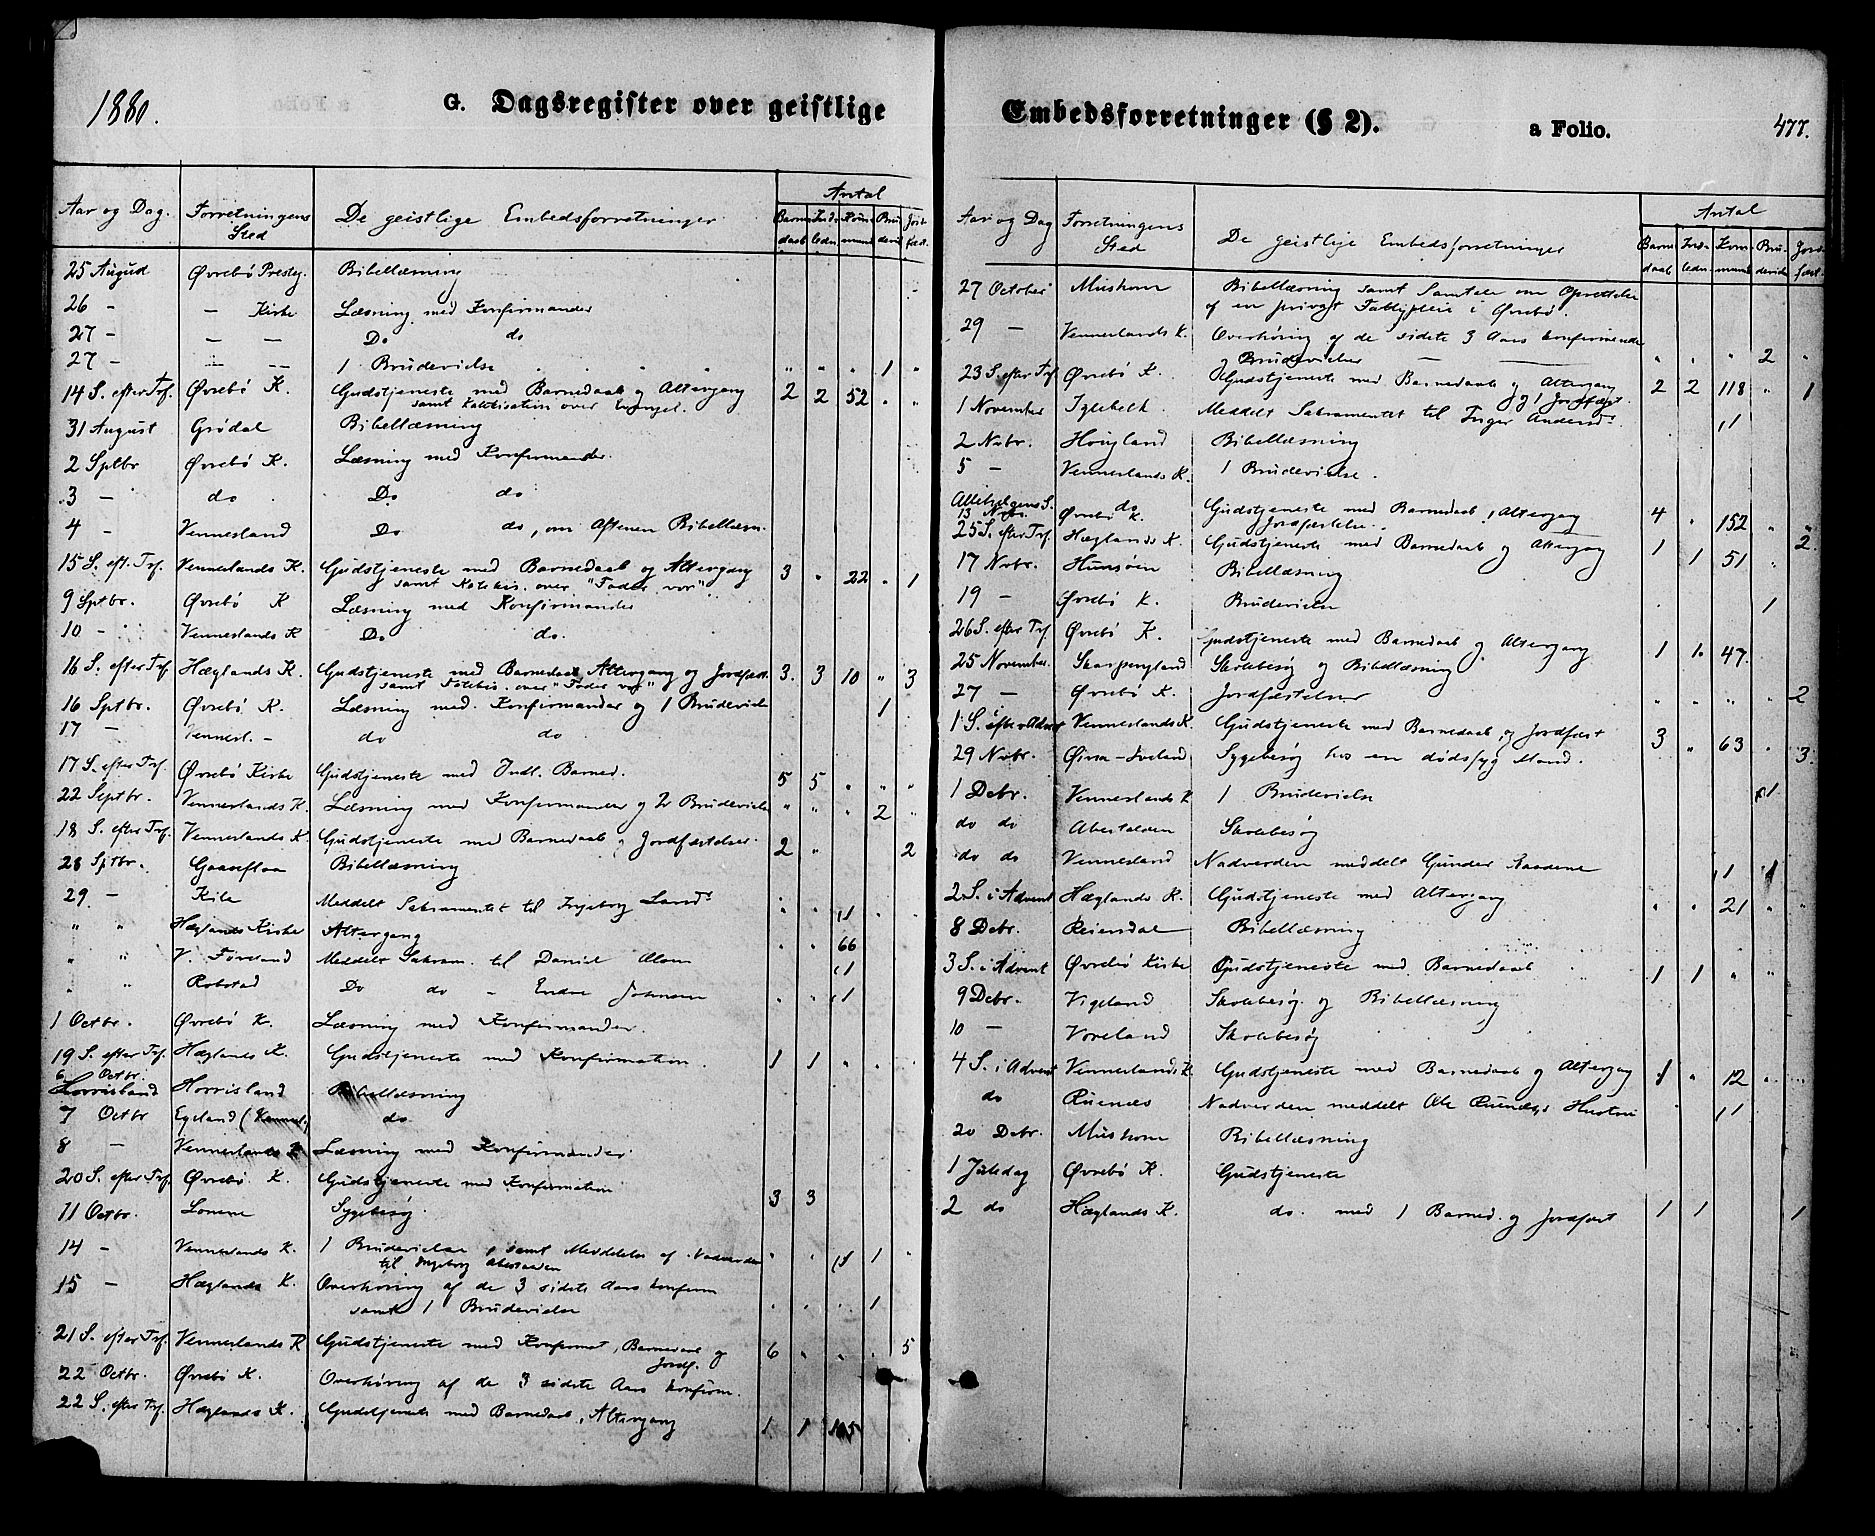 1880.
G. Dagsregister over geistlige
Aar og Dag. Forretningens Sted De geistlige Embedsforretninger Antal
Barne daab Indledn. Kommun Brudeviel Jordfæst.
25 August Øvrebö Presteg. Bibellæsning
26 - — Kirke Læsning med Konfirmander
27 - — — Do do
27 - — — 1 Brudevielse " " " 1 "
14 S. efter Trf. Øvrebö K. Gudstjeneste med Barnedaab og Altergang 2 2 52 " "
samt Katekisation over Evangel.
31 August Grödal Bibellæsning
2 Sptbr Øvrebö K. Læsning med Konfirmander.
3 - do Do do
4 - Vennesland Do do, om Aftenen Bibellæsn.
15 S. eft. Trf. Venneslands K. Gudstjeneste med Barnedaab og Altergang 3 " 22 " 1
samt Katekis. over "Fader vor"
9 Sptbr. Øvrebö K Læsning med Konfirmander
10 - Venneslands K Do do.
16 S. efter Trf. Hæglands K. Gudstjeneste med Barnedaab, Altergang og Jordfæst. 3. 3 10 " 3
samt Katekis. over "Fader vor"
16 Sptbr. Øvrebö K. Læsning med Konfirmander og 1 Brudeviels 1
17 - Vennesl. - do do
17 S. efter Trf. Øvrebö Kirke Gudstjeneste med Indl. Barned. 5 5 " " "
22 Septbr. Venneslands K. Læsning med Konfirmander og 2 Brudevielser " " " 2 "
18 S. efter Trf. Venneslands K. Gudstjeneste med Barnedaab og Jordfæstelser. 2 " 2
28 Sptbr. Gaaseflaa Bibellæsning
29. - Kile Meddelt Sakramentet til Ingeborg " " 1 " "
" " Hæglands Kirke Altergang " " 66
" " V. Föreland Meddelt Sakram. til Daniel 1
" " Robstad Do do - Endre Johnsen " " 1
1 Octbr. Øvrebö K. Læsning med Konfirmander.
19 S. efter Trf. Hæglands K. Gudstjeneste med Konfirmation 1 1 " " "
6 Octbr. Horrisland Bibellæsning
7 Octbr Egeland (Vennesl.) do
8 - Venneslands K Læsning med Konfirmander
20 S. efter Trf. Øvrebö K. Gudstjeneste med Konfirmation 3 3
11 Octbr. Lomme Sygebesög.
14 - Venneslands K. 1 Brudevielse, samt Meddelelse af Nadverden " " 1 1 "
til Ingeborg
15 - Hæglands K. Overhöring af de 3 sidste Aars konfirm
samt 1 Brudevielse " " " 1
21 S. efter Trf. Venneslands K Gudstjeneste med Konfirmat, Barnedaab og 6 " " " 5
Jordf.
22 Octbr. Øvrebö K. Overhöring af de 3 sidste Aars konfirm.
22 S. efter Trf. Hæglands K. Gudstjeneste med Barnedaab, Altergang 1 1 105
Embedsforretninger (§ 2). a Folio. 477.
Aar og Dag Forretningens Sted De geistlige Embedsforretninger Antal
Barne daab Ind- ledn. Kom- mun Bru- devielse Jord- fæst.
27 October Mushom Bibellæsning samt Samtale om Oprettelse
af en privat Fattigpleie i Øvrebö.
29 — Venneslands K. Overhöring af de sidste 3 Aars konfirmerede
og Brudevielser " " " 2 "
23 S. efter Trf. Øvrebö K. Gudstjeneste med Barnedaab og Altergang 2 2 118 " 1
og 1 Jordfæst.
1 November Iglebek Meddelt Sakramentet til Inger Andersd. 1
2 Nvbr. Hougland Bibellæsning
5 — Venneslands K. 1 Brudevielse.
Allehelgens S. do Gudstjeneste med Barnedaab, Altergang 4 " 152 " "
13 Nvbr. Øvrebö K. Jordfæstelse. 2
25 S. efter Trf. Hæglands K. Gudstjeneste med Barnedaab og Altergang 1 1 51 "
17 Nvbr. Hunsöen Bibellæsning
19 — Øvrebö K. Brudevielse 1
26 S. efter Trf. Øvrebö K. Gudstjeneste med Barnedaab og Altergang 1 1 47
25 November. Skarpengland Skolebesög og Bibellæsning
27 — Øvrebö K. Jordfæstelser " " " " 2
1 S. i Advent Venneslands K. Gudstjeneste med Barnedaab, og Jordfæst 3 " 63 " 3
29 Nvbr. Øvre-Iveland Sygebesög hos en dödssyg Mand.
1 Debr. Venneslands K 1 Brudevielse 1
do do Abestalen Skolebesög
do do Vennesland Nadverden meddelt Gunder 1
2 S. i Advent Hæglands K. Gudstjeneste med Altergang " " 21 " "
8 Debr. Reiersdal Bibellæsning
3 S. i Advent Øvrebö Kirke Gudstjeneste med Barnedaab 1 1 " "
9 Debr. Vigeland Skolebesög og Bibellæsning
10 — Voreland Skolebesög
4 S. i Advent Venneslands K Gudstjeneste med Barnedaab og Altergang 1 " 12 " "
do Ruenæs Nadverden meddelt Ole Ruenæs's Hustru 1
20 Debr. Mushom Bibellæsning
1 Juledag Øvrebö K. Gudstjeneste
2 do Hæglands K. do. med 1 Barned. og Jordfæst 1 1 1